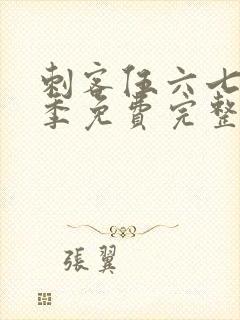 刺客伍六七
季免費完整
張翼